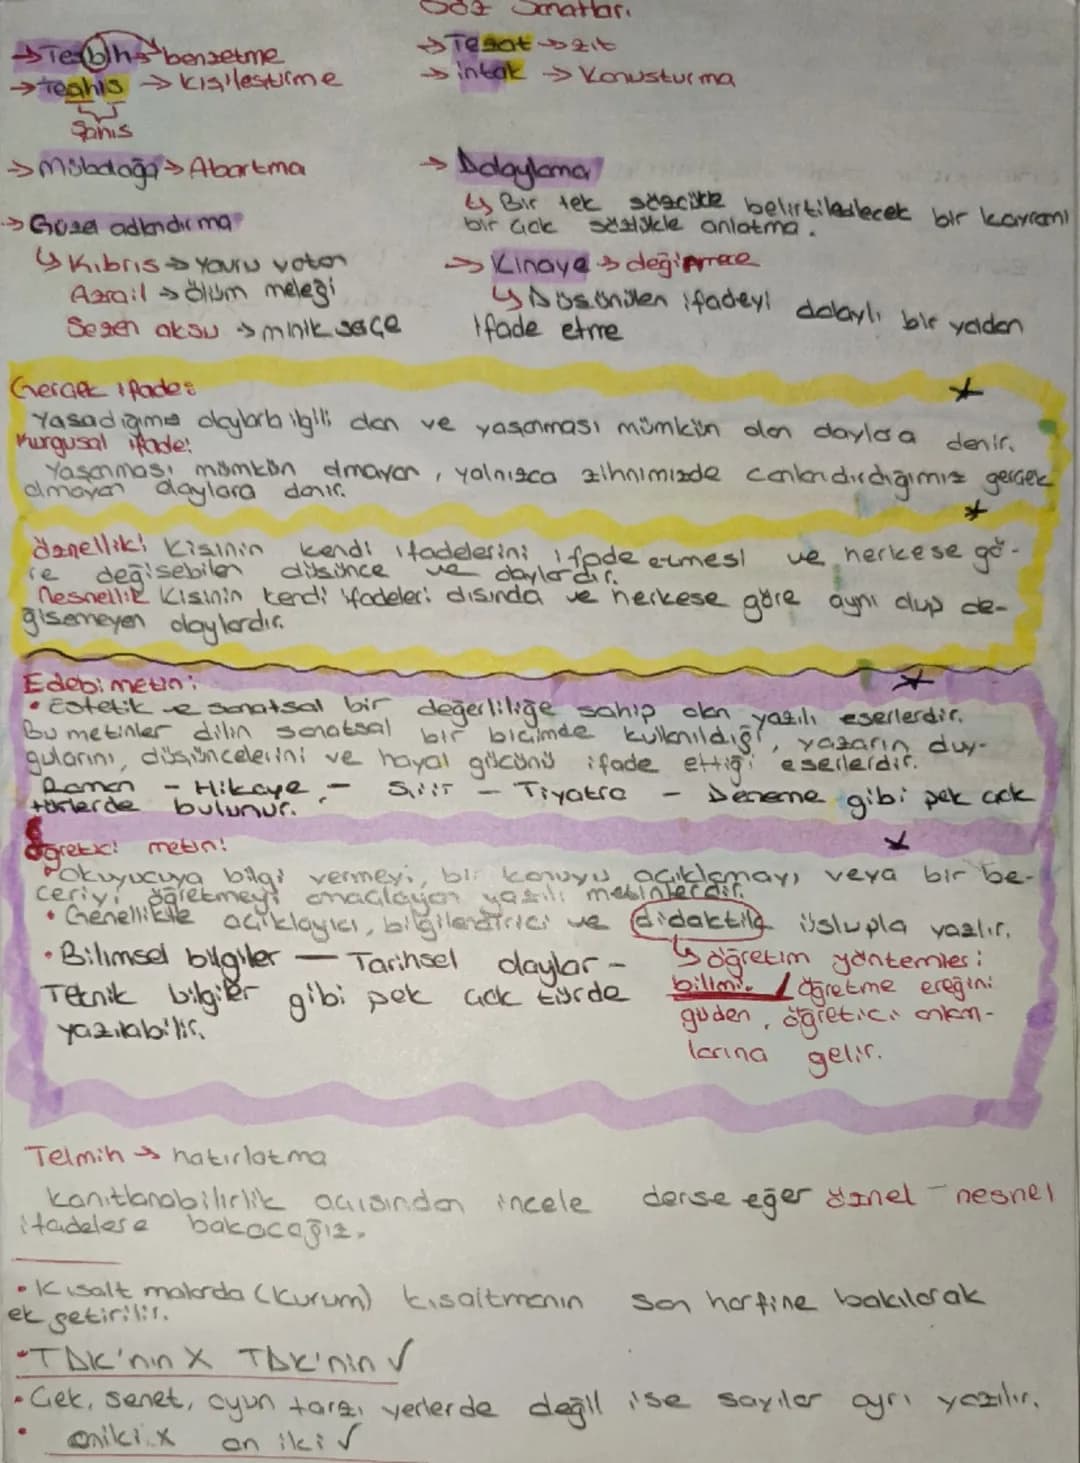 Söz Sanatları
→ Teşbih → benzetme
→ Teşhis → kişileştirme
Şahıs
→ Mübalağa → Abartma
→ Güzel adlandırma
↳ Kıbrıs → yavru vatan
Azrail → ölüm meleği
Sezen aksu → minik serçe
→ Tezat → zıt
→ intak → Konuşturma
→ Dolaylama
↳ Bir tek sözcükle belirtilebilecek bir kavramı
bir çok sözcükle anlatma.
→ Kinaye → değinmece
↳ Düşünülen ifadeyi dolaylı bir yoldan
ifade etme
Gerçek ifade:
Yaşadığımız olaylarla ilgili olan ve yaşanması mümkün olan olaylara denir.
Kurgusal ifade:
Yaşanması mümkün olmayan, yalnızca zihnimizde canlandırdığımız gerçek
olmayan olaylara denir.
Öznellik: Kişinin kendi ifadelerini ifade etmesi ve herkese gö-
re değişebilen düşünce ve olaylardır.
Nesnellik Kişinin kendi ifadeleri dışında ve herkese göre aynı olup de-
ğişmeyen olaylardır.
Edebi metin:
• Estetik ve sanatsal bir değerliliğe sahip olan yazılı eserlerdir.
Bu metinler dilin sanatsal bir biçimde kullanıldığı, yazarın duy-
gularını, düşüncelerini ve hayal gücünü ifade ettiği eserlerdir.
Roman - Hikaye - Şiir - Tiyatro - Deneme gibi pek çok
türlerde bulunur.
Öğretici metin:
• Okuyucuya bilgi vermeyi, bir konuyu açıklamayı veya bir be-
ceriyi öğretmeyi amaçlayan yazılı metinlerdir.
• Genellikle açıklayıcı, bilgilendirici ve didaktik üslupla yazılır.
• Bilimsel bilgiler — Tarihsel olaylar -
Teknik bilgiler gibi pek çok türde
yazılabilir.
↳ öğretim yöntemleri
bilimi. / öğretme ereğini
güden, öğretici anlam-
larına gelir.
Telmih → hatırlatma
Kanıtlanabilirlik açısından incele derse eğer öznel - nesnel
ifadelere bakacağız.
• Kısaltmalarda (Kurum) kısaltmanın son harfine bakılarak
ek getirilir.
• TDK'nın X TDK'nin √
• Çek, senet, oyun tarzı yerlerde değil ise sayılar ayrı yazılır.
• oniki X on iki √